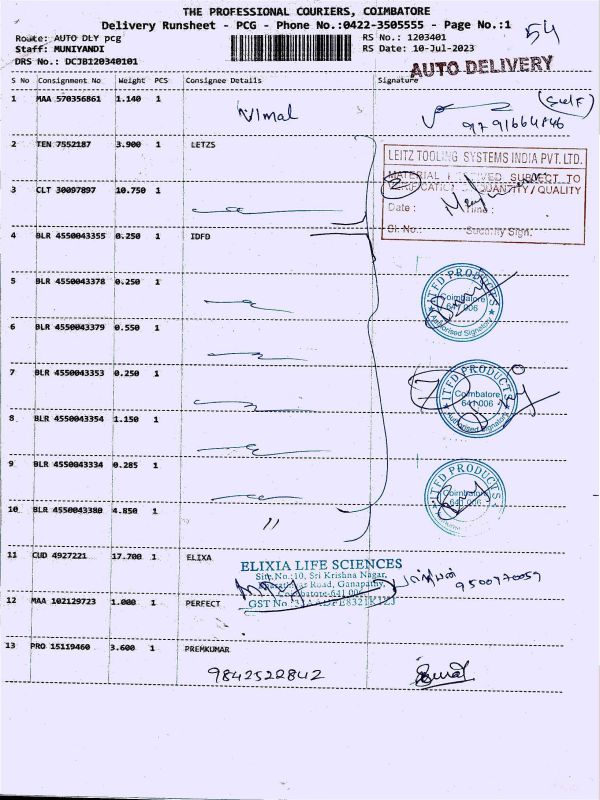 THE PROFESSIONAL COURIERS, COIMBATORE
Delivery Runsheet - PCG - Phone No.:0422-3505555 - Page No.:1
54
Route: AUTO DLY pcg
RS No.: 1203401
Staff: MUNIYANDI
RS Date: 10-Jul-2023
DRS No.: DCJB120340101
AUTO DELIVERY
S No Consignment No Weight PCS Consignee Details Signature
1 MAA 570356861 1.140 1
Vimal
(Self)
2 TEN 7552187 3.900 1 LETZS
LEITZ TOOLING SYSTEMS INDIA PVT. LTD.
MATERIAL RECEIVED SUBJECT TO
VERIFICATION QUANTITY / QUALITY
3 CLT 30097897 10.750 1
Date : Time :
Sl. No.: Security Sign.
4 BLR 4550043355 0.250 1 IDFD
5 BLR 4550043378 0.250 1
ITFD PRODUCTS
Coimbatore
641 006
Authorised Signatory
6 BLR 4550043379 0.550 1
7 BLR 4550043353 0.250 1
7
ITFD PRODUCTS
Coimbatore
641 006
Authorised Signatory
8 BLR 4550043354 1.150 1
9 BLR 4550043334 0.285 1
ITFD PRODUCTS
Coimbatore
10 BLR 4550043380 4.850 1
"
11 CUD 4927221 17.700 1 ELIXA
ELIXIA LIFE SCIENCES
Site No.:10, Sri Krishna Nagar,
Road, Ganapathy,
Coimbatore-641 006
GST No :
9500970059
12 MAA 102129723 1.000 1 PERFECT
13 PRO 15119460 3.600 1 PREMKUMAR
9842522842